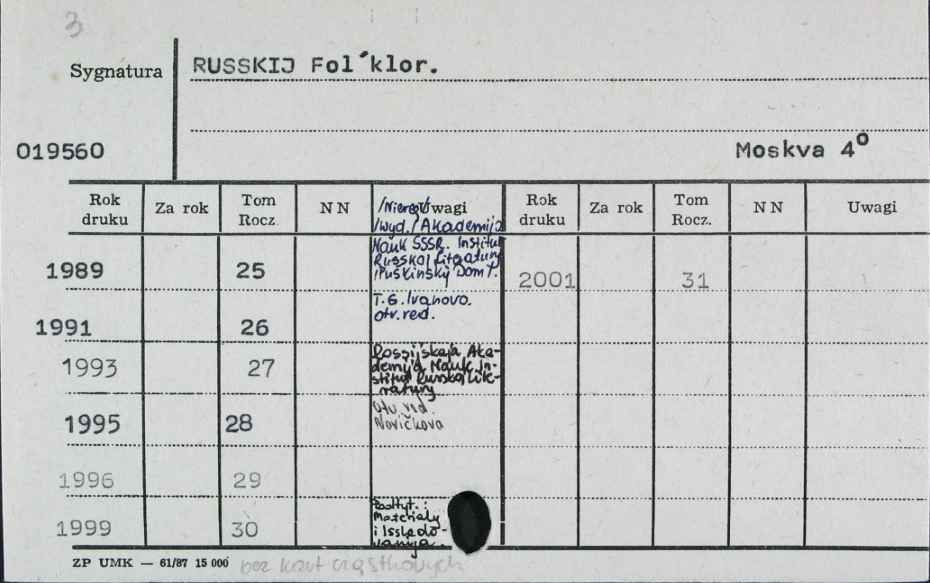 3
Sygnatura RUSSKIJ Fol´klor.
019560 Moskva 4°
Rok druku Za rok Tom Rocz. NN Uwagi Rok druku Za rok Tom Rocz. NN Uwagi
/Niereg./
/wyd./Akademija
1989 25 Nauk SSSR. Institut
Russkoj Literatury
/Puškinskij Dom/.
2001 31
T.G. Ivanova.
1991 26 otv. red.
1993 27 Rossijskaja Aka-
demija Nauk. In-
stitut Russkoj Lite-
ratury
1995 28 Otv. red.
Novičkova
1996 29
1999 30 Podtyt.:
Materialy
i Issledo-
vanija.
ZP UMK — 61/87 15 000 bez kart cząstkowych